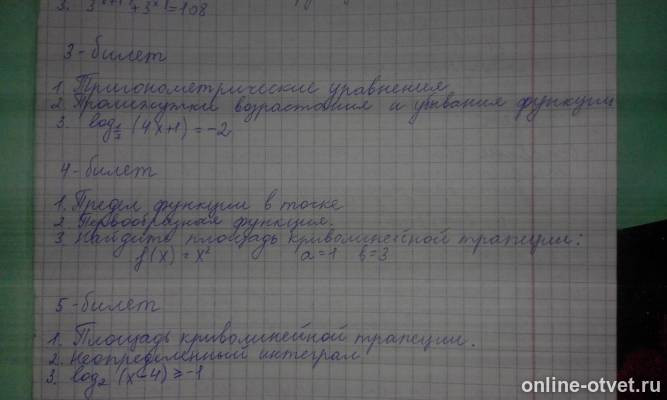 3. 3 + 3 = 108
3 - билет
1. Тригонометрические уравнения
2. Промежутки возрастания и убывания функции
3. log_{1/7} (4x+1) = -2
4 - билет
1. Предел функции в точке
2. Первообразная функция.
3. Найдите площадь криволинейной трапеции:
f(x) = x² a=1 b=3
5 - билет
1. Площадь криволинейной трапеции.
2. Неопределенный интеграл
3. log₂ (x-4) ≥ -1
online-otvet.ru